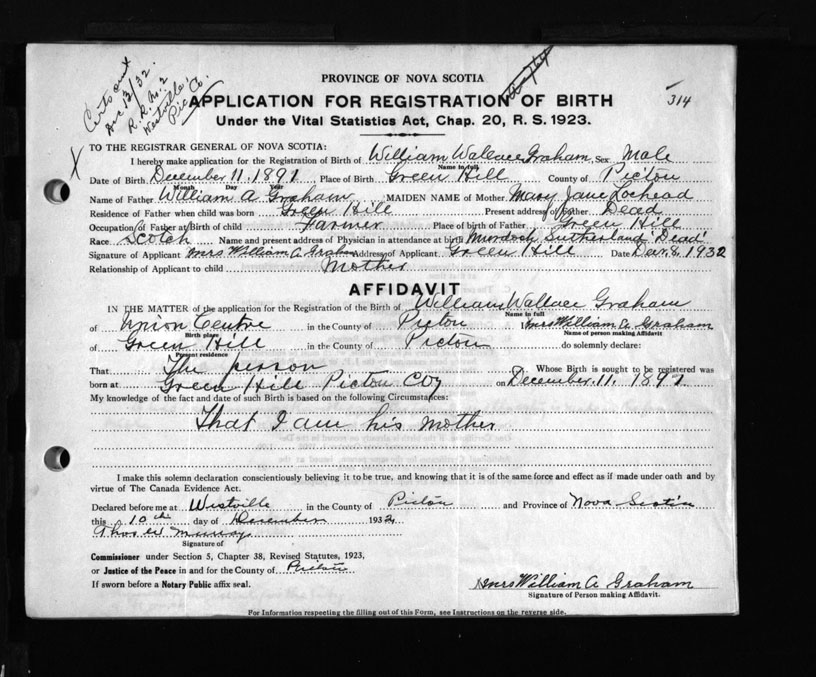 Cert sent
Dec 12/32.
R. R. No. 2
Westville
Pic. Co.
314
PROVINCE OF NOVA SCOTIA
APPLICATION FOR REGISTRATION OF BIRTH
Under the Vital Statistics Act, Chap. 20, R. S. 1923.
X
TO THE REGISTRAR GENERAL OF NOVA SCOTIA:
I hereby make application for the Registration of Birth of William Wallace Graham Sex Male
Name in full
Date of Birth December 11. 1891 Place of Birth Green Hill County of Pictou
Month Day Year
Name of Father William A Graham MAIDEN NAME of Mother Mary Jane Lochead
Residence of Father when child was born Green Hill Present address of Father Dead
Occupation of Father at Birth of child Farmer Place of birth of Father Green Hill
Race Scotch Name and present address of Physician in attendance at birth Murdoch Sutherland 'Dead'
Signature of Applicant Mrs William A Graham Address of Applicant Green Hill Date Dec. 8. 1932
Relationship of Applicant to child Mother
AFFIDAVIT
IN THE MATTER of the application for the Registration of the Birth of William Wallace Graham
Name in full
of Union Centre in the County of Pictou I Mrs William A. Graham
Birth place Name of person making Affidavit
of Green Hill in the County of Pictou do solemnly declare:
Present residence
That The person Whose Birth is sought to be registered was
born at Green Hill Pictou Coy on December. 11. 1891
My knowledge of the fact and date of such Birth is based on the following Circumstances:
That I am his mother
I make this solemn declaration conscientiously believing it to be true, and knowing that it is of the same force and effect as if made under oath and by
virtue of The Canada Evidence Act.
Declared before me at Westville in the County of Pictou and Province of Nova Scotia
this 10th day of December 1932
Thos W Murray
Signature of
Commissioner under Section 5, Chapter 38, Revised Statutes, 1923,
or Justice of the Peace in and for the County of Pictou
If sworn before a Notary Public affix seal.
Mrs William A Graham
Signature of Person making Affidavit.
For Information respecting the filling out of this Form, see Instructions on the reverse side.